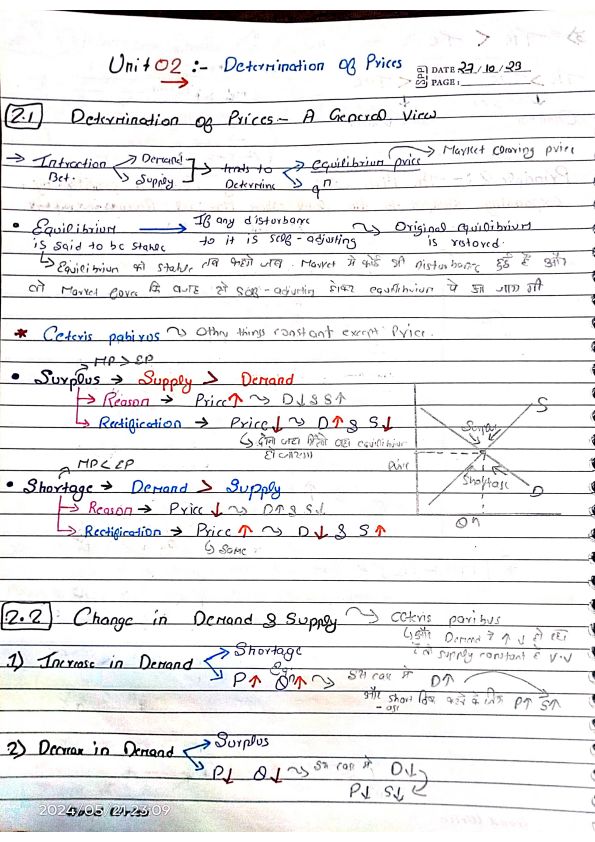 Unit 02 :- Determination of Prices
SPP DATE 27/10/23
PAGE:
2.1 Determination of Prices - A General View
→ Intraction Bet. Demand Supply → tends to Determine → equilibrium price → Market clearing price
qⁿ
• Equilibrium is said to be stable → If any disturbance to it is self-adjusting ~> Original equilibrium is restored.
↳ Equilibrium को stable तब कहते जब Market में कोई भी disturbance हुई है और
वो Market force की वजह से self-adjusting होकर equilibrium पे आ जाए
* Ceteris pabirus ~> Other things constant except Price.
MP > EP
• Surplus → Supply > Demand
↳ Reason → Price↑ ~> D↓ & S↑
↳ Rectification → Price↓ ~> D↑ & S↓
↳ दोनों जहां मिलेंगे वहां equilibrium
हो जाएगा
S
Surplus
Price
Shortage
D
Qⁿ
MP < EP
• Shortage → Demand > Supply
↳ Reason → Price ↓ ~> D↑ & S↓
↳ Rectification → Price ↑ ~> D↓ & S↑
↳ Same.
2.2 Change in Demand & Supply ~> ceteris paribus
↳ और Demand में ↑↓ हो रहा
है तो supply constant है V.V
1) Increase in Demand → Shortage
Eq.
P↑ Qⁿ↑ ~> इस case में D↑
और short-age ठीक करने के लिए P↑ S↑
2) Decrease in Demand → Surplus
P↓ Q↓ ~> इस case में D↓
P↓ S↓
2024/05/21 23:09